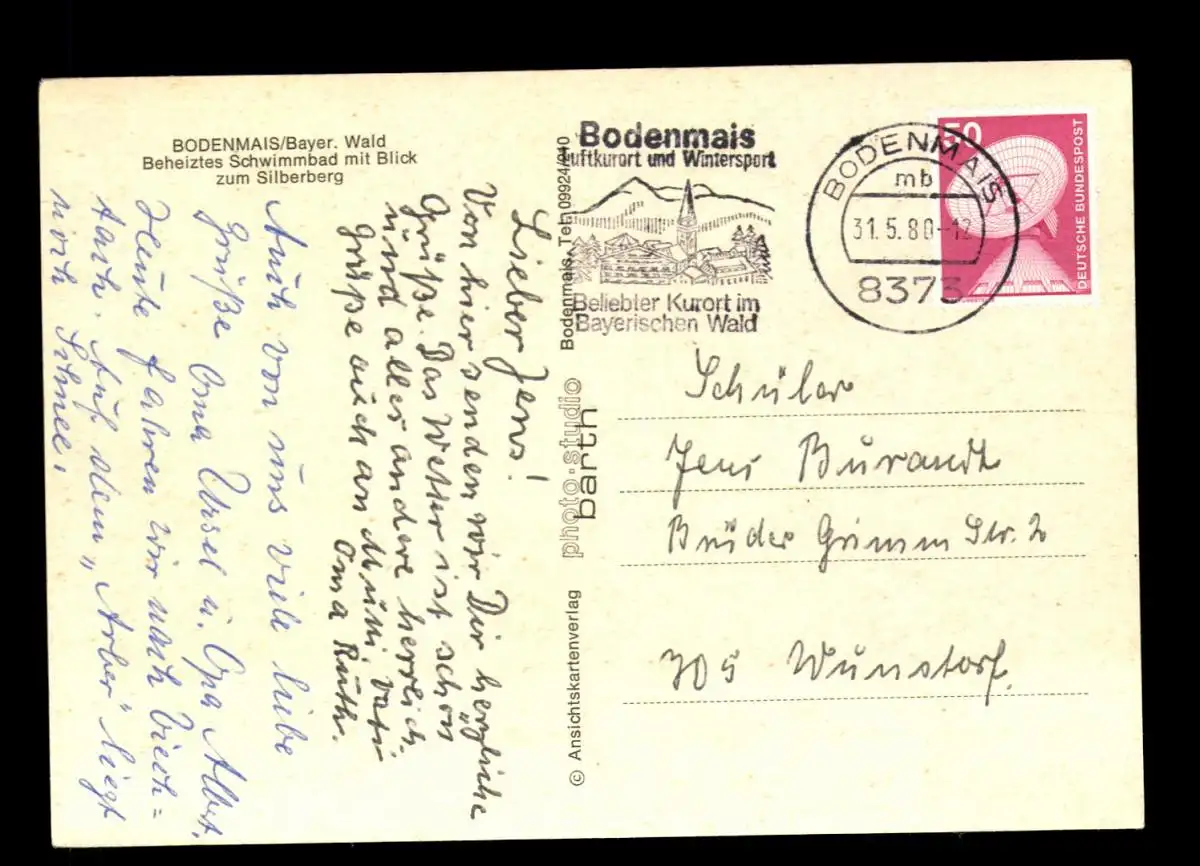 BODENMAIS/Bayer. Wald
Beheiztes Schwimmbad mit Blick
zum Silberberg
Lieber Jens!
Von hier senden wir Dir herzliche
Grüße. Das Wetter ist schön
und alles andere herrlich.
Grüße auch an Mutti, Vati
Oma Ruth.
Auch von uns viele liebe
Grüße Oma Ursel u. Opa Albert.
Heute fahren wir nach Viech=
tach. Auf dem "Arber" liegt
noch Schnee.
© Ansichtskartenverlag
photo-studio
barth
Bodenmais, Tel. 09924/210
Bodenmais
Luftkurort und Wintersport
Beliebter Kurort im
Bayerischen Wald
BODENMAIS
mb
31.5.80-12
8373
50
DEUTSCHE BUNDESPOST
Schüler
Jens Burandt
Brüder Grimm Str. 2
305 Wunstorf.